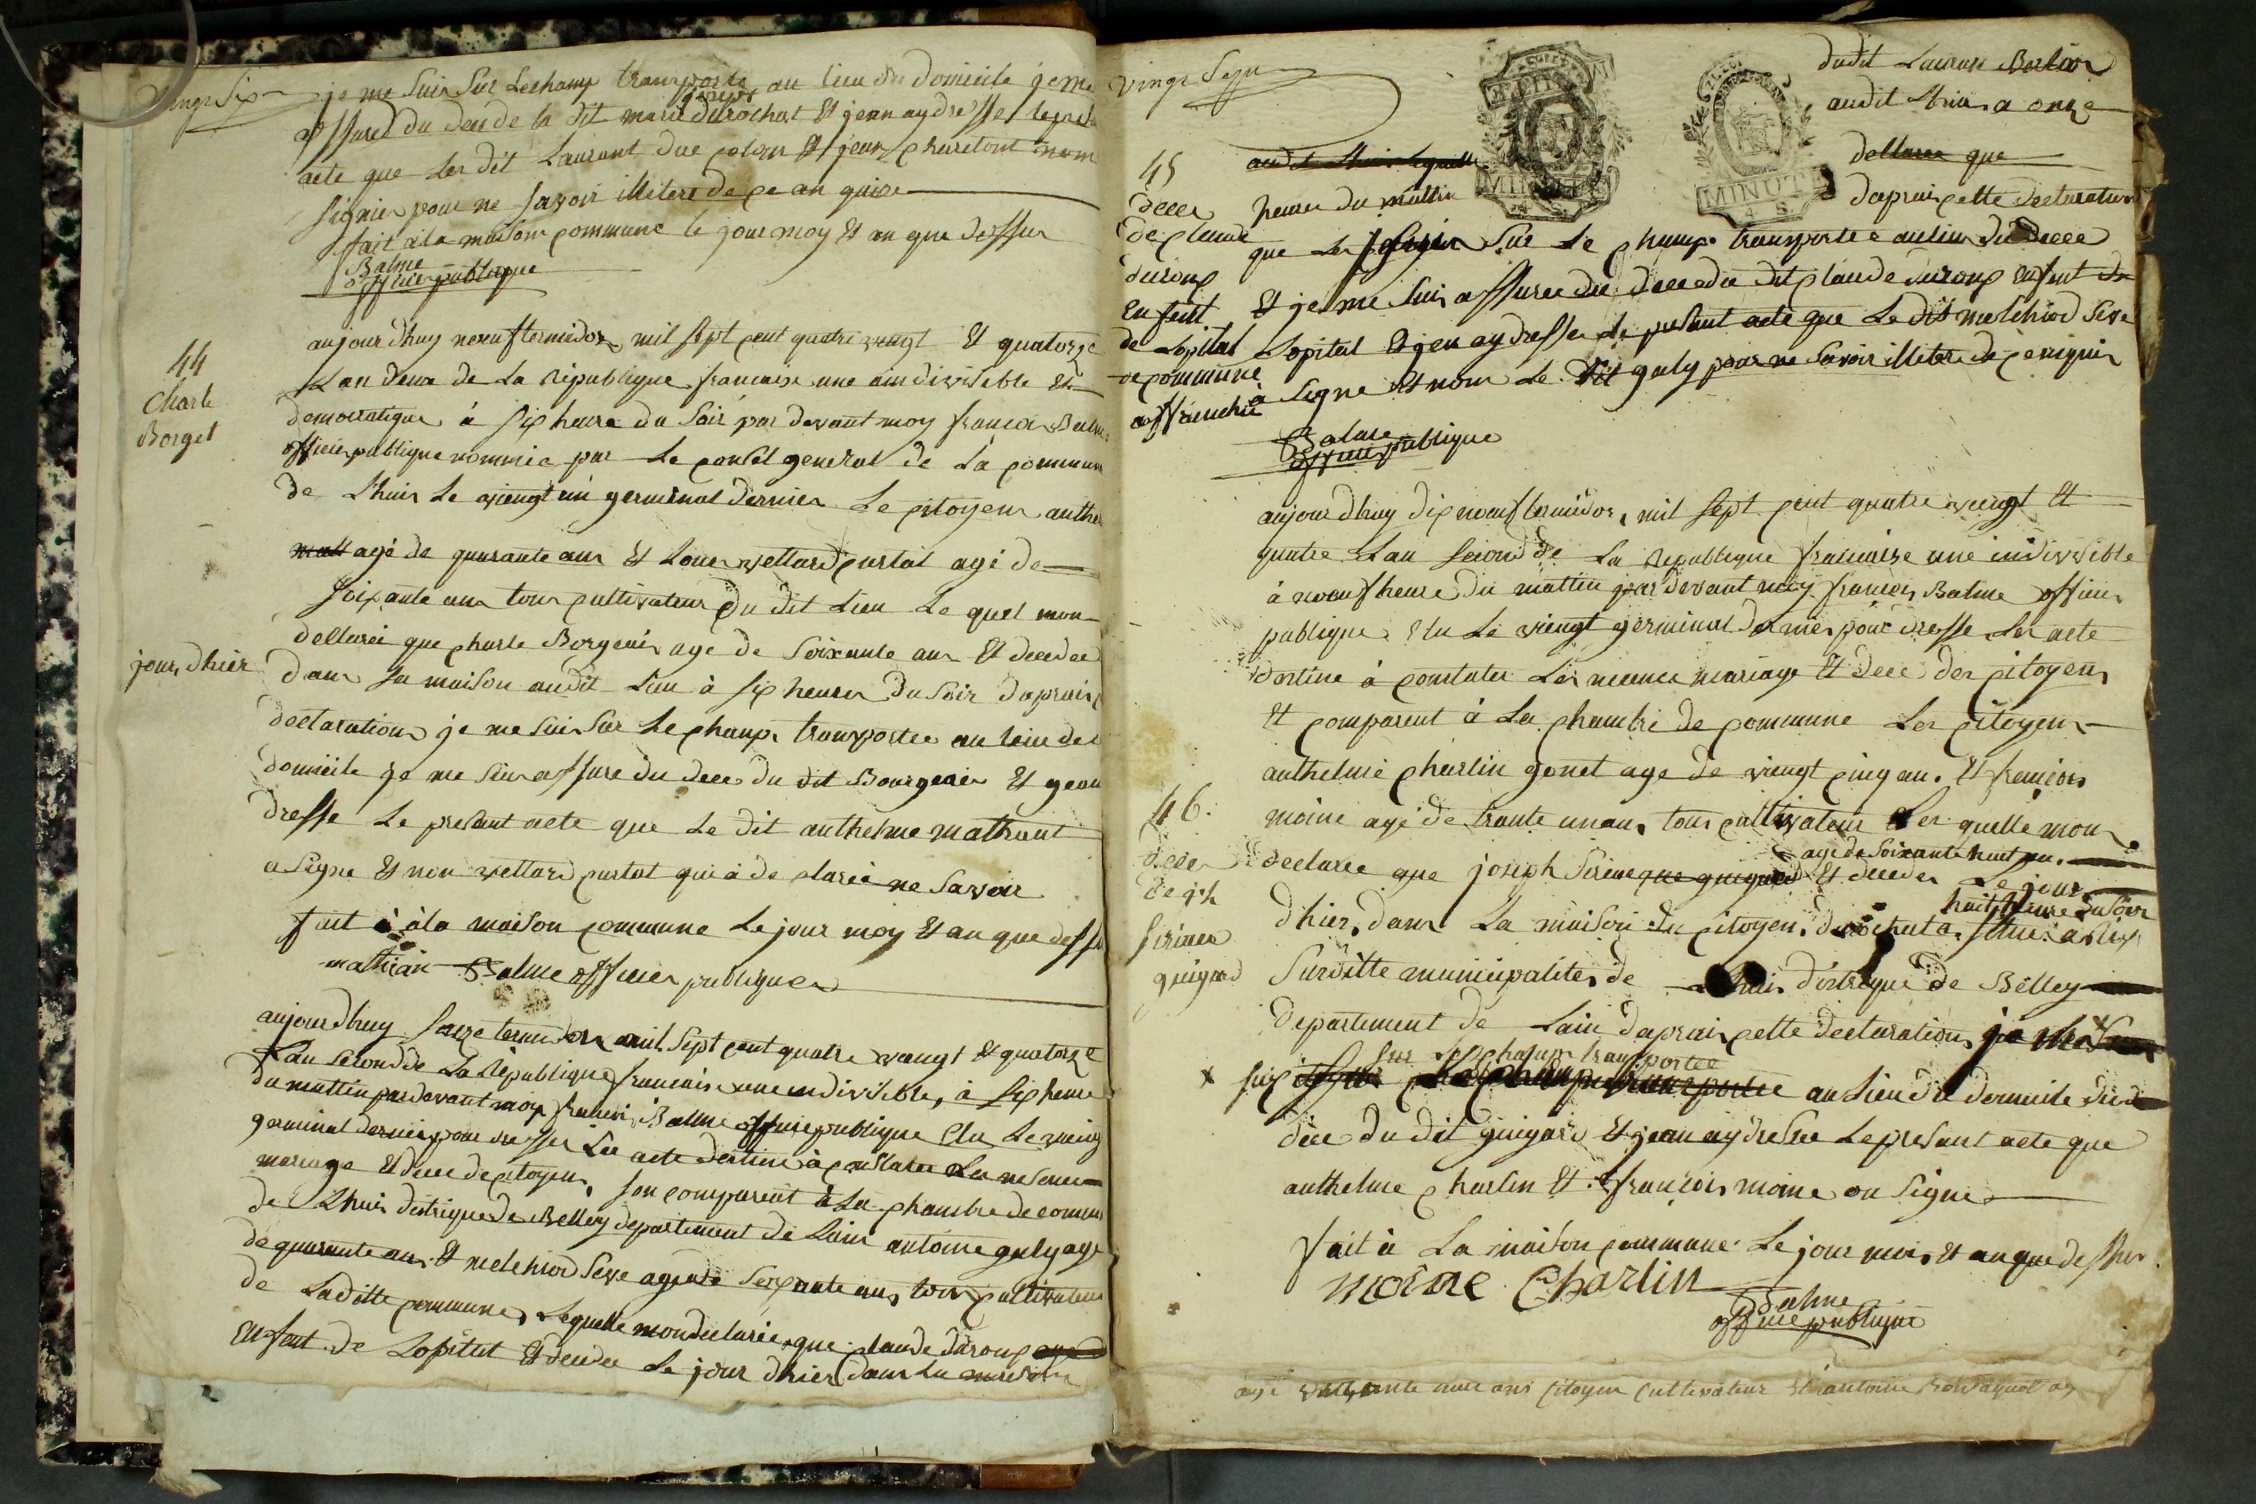 vingt Six
je me Suis Sur Lechamp transporte au lieu du domicile je me
gonet
assuré du deces de la dit marie durochat Et jean ay dresse le pres
acte que Les dit Laurant duc colon Et jean charetont nom
signier pour ne savoir illitere de ce an quise
fait a la maison commune le jour moy Et an que dessus
Balme
officier publique
44
Charle
Borget
aujourdhuy neuf termidor mil sept cent quatre vingt Et quatorze
Lan deux de La République francaise une aindivisible Et
democratique à six heure du Soir par devant moy francoi Balme
officier publique nommée par Le conseil general de La commune
de Lhuis Le viengt un germinal dernier Le citoyen anthel
agé de quarante ans Et Louis vettard curtat agé de
soixante ans tous cultivateur du dit Lieu Le quel mon
dellaréi que charle Borgeais age de Soixante ans Et decedee
jour dhier
dans sa maison audit Lieu à six heures du Soir daprais
declaration je me suis sur Le champ transportee au leiu de
domicile je me suis assuré du deces du dit Bourgeais Et jean
dresse Le presant acte que Le dit anthelme mathant
a signe Et non vettard curtat qui à de clarée ne Savoir
fait à à la maison commune Le jour moy Et an que dessu
mathian Balme officier publique
aujourdhuy saize termidor mil sept cent quatre vangt Et quatorze
Lan second de La République francaise une indivisible, à six heure
du mattin par devant moy francoi Balme officie publique Elu Le vieng
germinal dernier pour dresser Les acte destine à constater Les nesence
mariage Et dece de citoyen, son comparent à La chambre de commu
de Lhuis distrique de Belley departement de Lain antoine guly age
de quarante ans Et melchiord seve agé de soixante ans, tous cultivateur
de Laditte commune, Lequelle mon declarée que claude duroup
Enfant de Lopital Et decedee Le jour dhier dans La maison
vingt Sept
MINUTE
MINUTE
4 S
dudit Laurant Borlion
audit Lhuis a onze
dellaree que
45
deces
de claude
duroup
Enfent
de Lopital
de commune
affranchie
audit Lhuis Lequelle
heures du mattin
daprais cette declaration
que Les Sur Le champ transportée au lieu du decee
Et je me suis assuree du decee du dit claude duroup Enfent de
Lopital Et jen ay dresse Le presant acte que Le dit melchiord Seve
à signe Et nom Le dit guly pour ne Savoir illitere de cenquis
Balme
officier publique
aujourdhuy dix neuf termidor, mil sept cent quatre viengt Et
quatre Lan second de La republique francaise une indivisible
à neuf heure du mattin par devant moy francois Balme officier
publique Elu Le viengt germinal dernier pour dresse Les acte
destine à constater Les nesence mariage Et dece des citoyens
Et comparent à La chambre de commune Les citoyens
anthelme charlin gonet age de viengt cinq an. Et francois
moine agé de trante un an, tous cultivateur Les quelle mon
46
deces
de jh
sirien
guigard
age de Soixante huit an.
declaree que joseph Sirien que guigard Et decedee Le jour
huit heure du soir
dhier, dans La maison du citoyen, durochat a situé à
Surditte municipalité de Lhuis distrique de Belley
departement de Lain daprais cette declaration, je me
sur Le champ transportee
x suis transportée au Lieu du domicile du
dece du dit guigard Et jean ay dresse Le presant acte que
anthelme charlin Et francois moine on Signe
fait à La maison commune Le jour mois Et an que dessus
moine Charlin
Balme
officie publique
agé ans citoyen cultivateur Et antoine